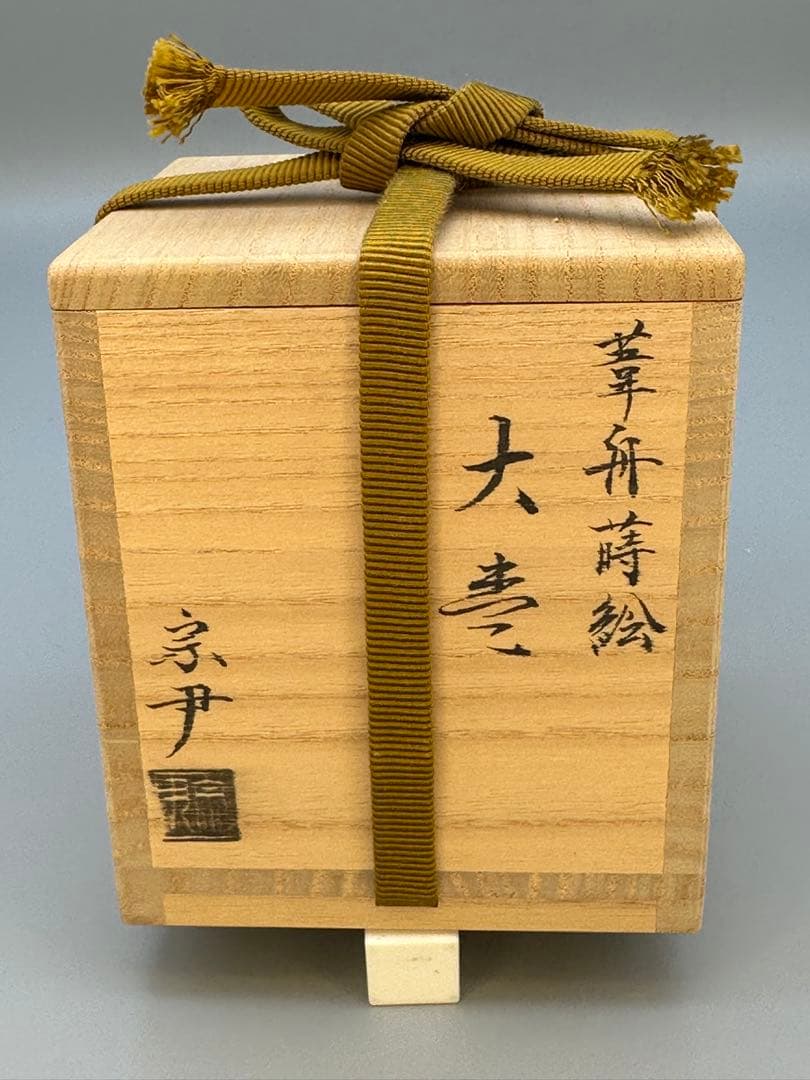 葦舟蒔絵
大棗
宗尹